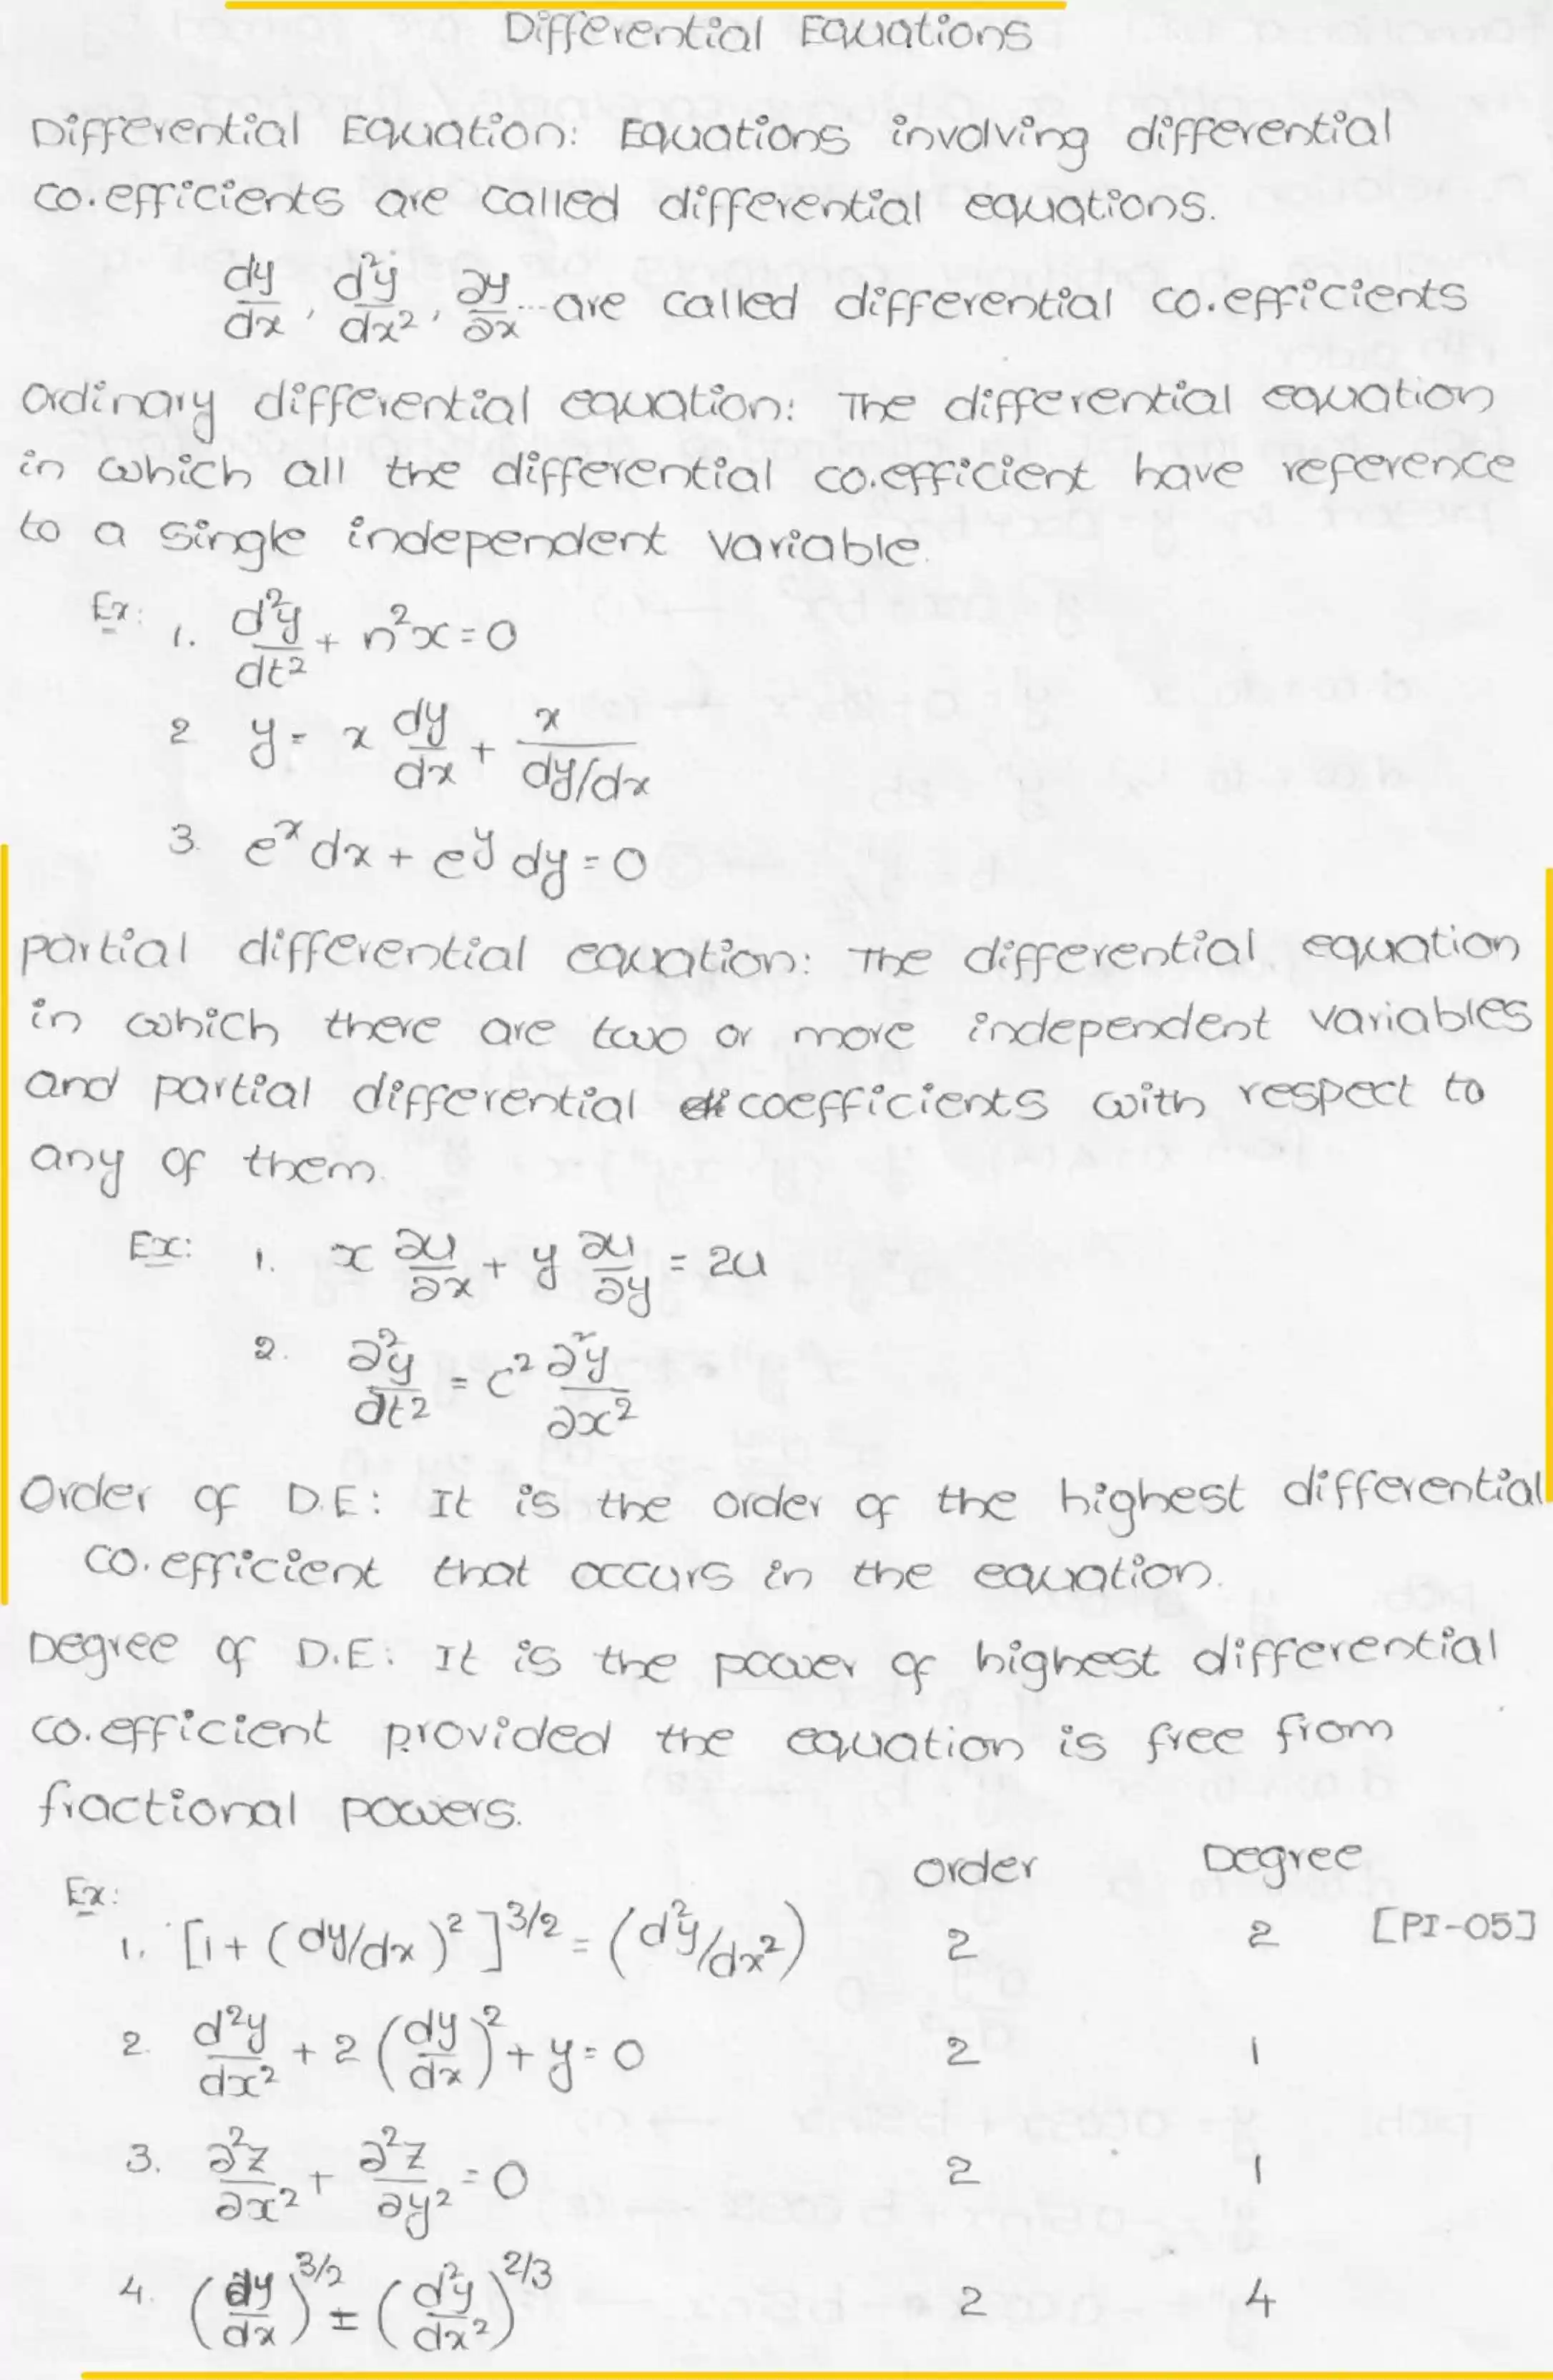 Differential Equations
Differential Equation: Equations involving differential
co.efficients are called differential equations.
dy/dx, d²y/dx², ∂y/∂x ... are called differential co.efficients
Ordinary differential equation: The differential equation
in which all the differential co.efficient have reference
to a single independent variable.
Ex: 1. d²y/dt² + n²x = 0
2 y = x dy/dx + x/(dy/dx)
3. eˣ dx + eʸ dy = 0
Partial differential equation: The differential equation
in which there are two or more independent variables
and partial differential coefficients with respect to
any of them.
Ex: 1. x ∂u/∂x + y ∂u/∂y = 2u
2. ∂²y/∂t² = c² ∂²y/∂x²
Order of D.E: It is the order of the highest differential
co.efficient that occurs in the equation.
Degree of D.E: It is the power of highest differential
co.efficient provided the equation is free from
fractional powers.
Order Degree
Ex:
1. [1 + (dy/dx)²]^3/2 = (d²y/dx²) 2 2 [PI-05]
2. d²y/dx² + 2 (dy/dx)² + y = 0 2 1
3. ∂²z/∂x² + ∂²z/∂y² = 0 2 1
4. (dy/dx)^3/2 = (d²y/dx²)^2/3 2 4